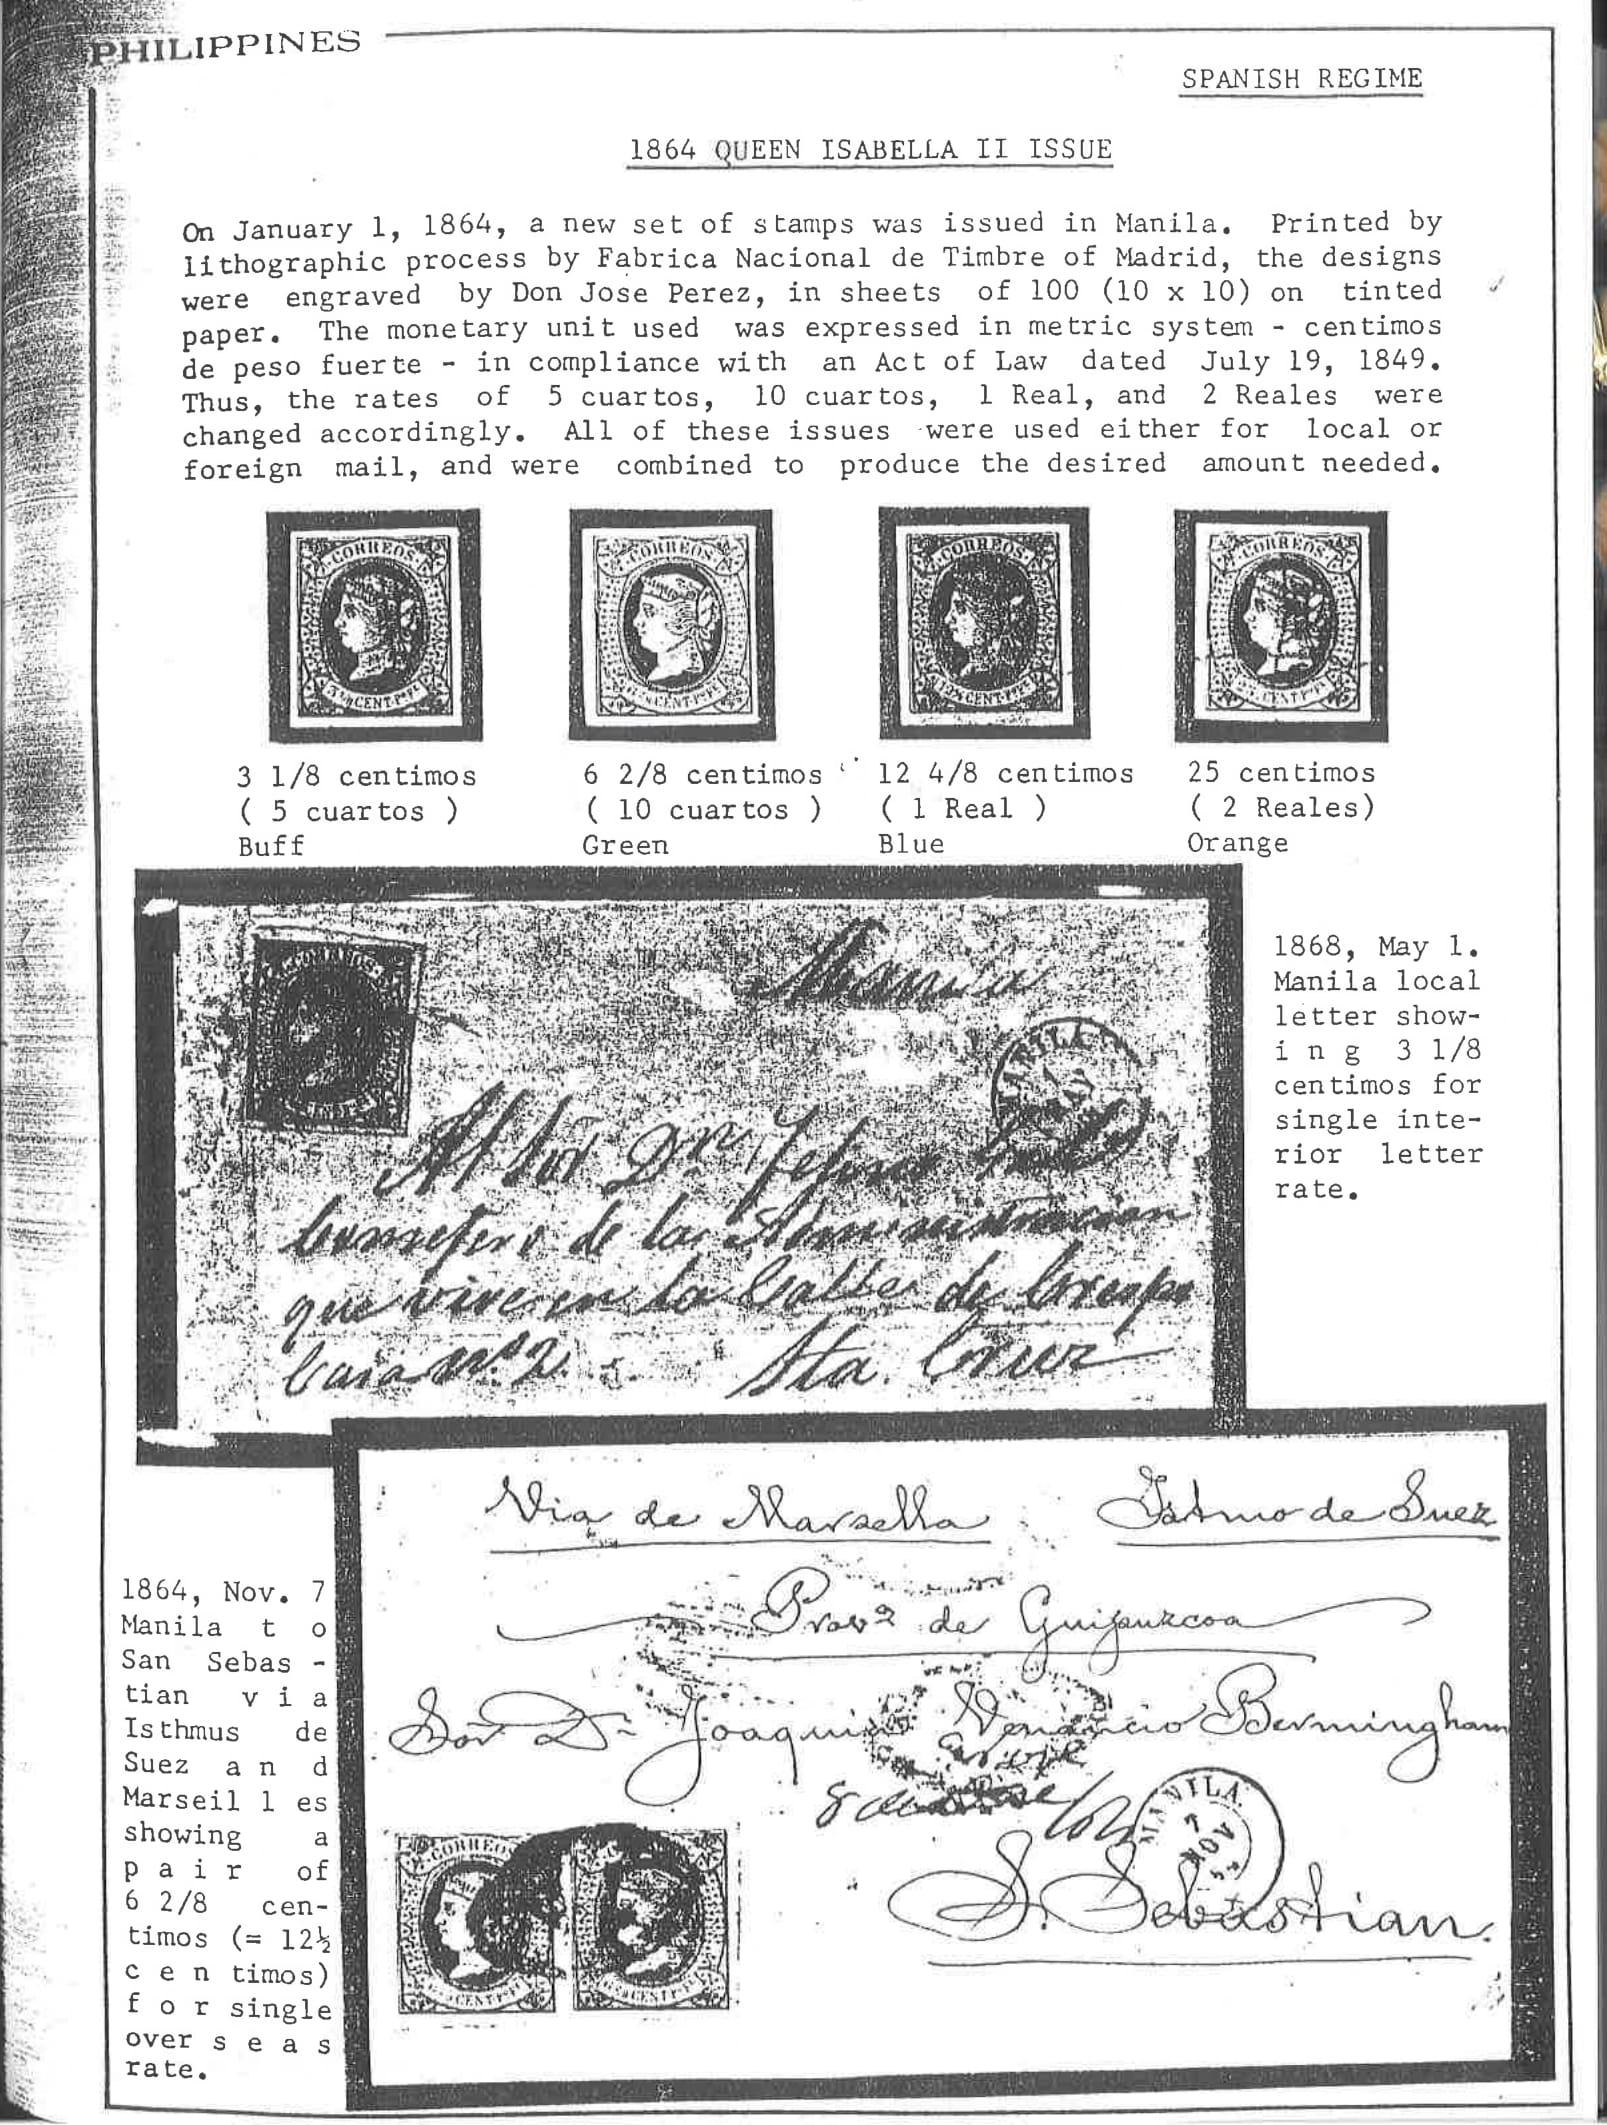 PHILIPPINES
SPANISH REGIME
1864 QUEEN ISABELLA II ISSUE
On January 1, 1864, a new set of stamps was issued in Manila. Printed by
lithographic process by Fabrica Nacional de Timbre of Madrid, the designs
were engraved by Don Jose Perez, in sheets of 100 (10 x 10) on tinted
paper. The monetary unit used was expressed in metric system - centimos
de peso fuerte - in compliance with an Act of Law dated July 19, 1849.
Thus, the rates of 5 cuartos, 10 cuartos, 1 Real, and 2 Reales were
changed accordingly. All of these issues were used either for local or
foreign mail, and were combined to produce the desired amount needed.
CORREOS
CORREOS
CORREOS
CORREOS
3 1/8 centimos
( 5 cuartos )
Buff
6 2/8 centimos
( 10 cuartos )
Green
12 4/8 centimos
( 1 Real )
Blue
25 centimos
( 2 Reales)
Orange
CORREOS
Manila
Al Sor Dn
de la Administracion
que vive en la Calle de
Casa No 2. Sta. Cruz
1868, May 1.
Manila local
letter show-
i n g 3 1/8
centimos for
single inte-
rior letter
rate.
1864, Nov. 7
Manila t o
San Sebas -
tian v i a
Isthmus de
Suez a n d
Marseil l es
showing a
p a i r of
6 2/8 cen-
timos (= 12½
c e n timos)
f o r single
over s e a s
rate.
Via de Marsella Istmo de Suez
Prova de Guipuzcoa
Sor Dn Joaquin Venancio Bermingham
MANILA
7
NOV
S. Sebastian.
CORREOS